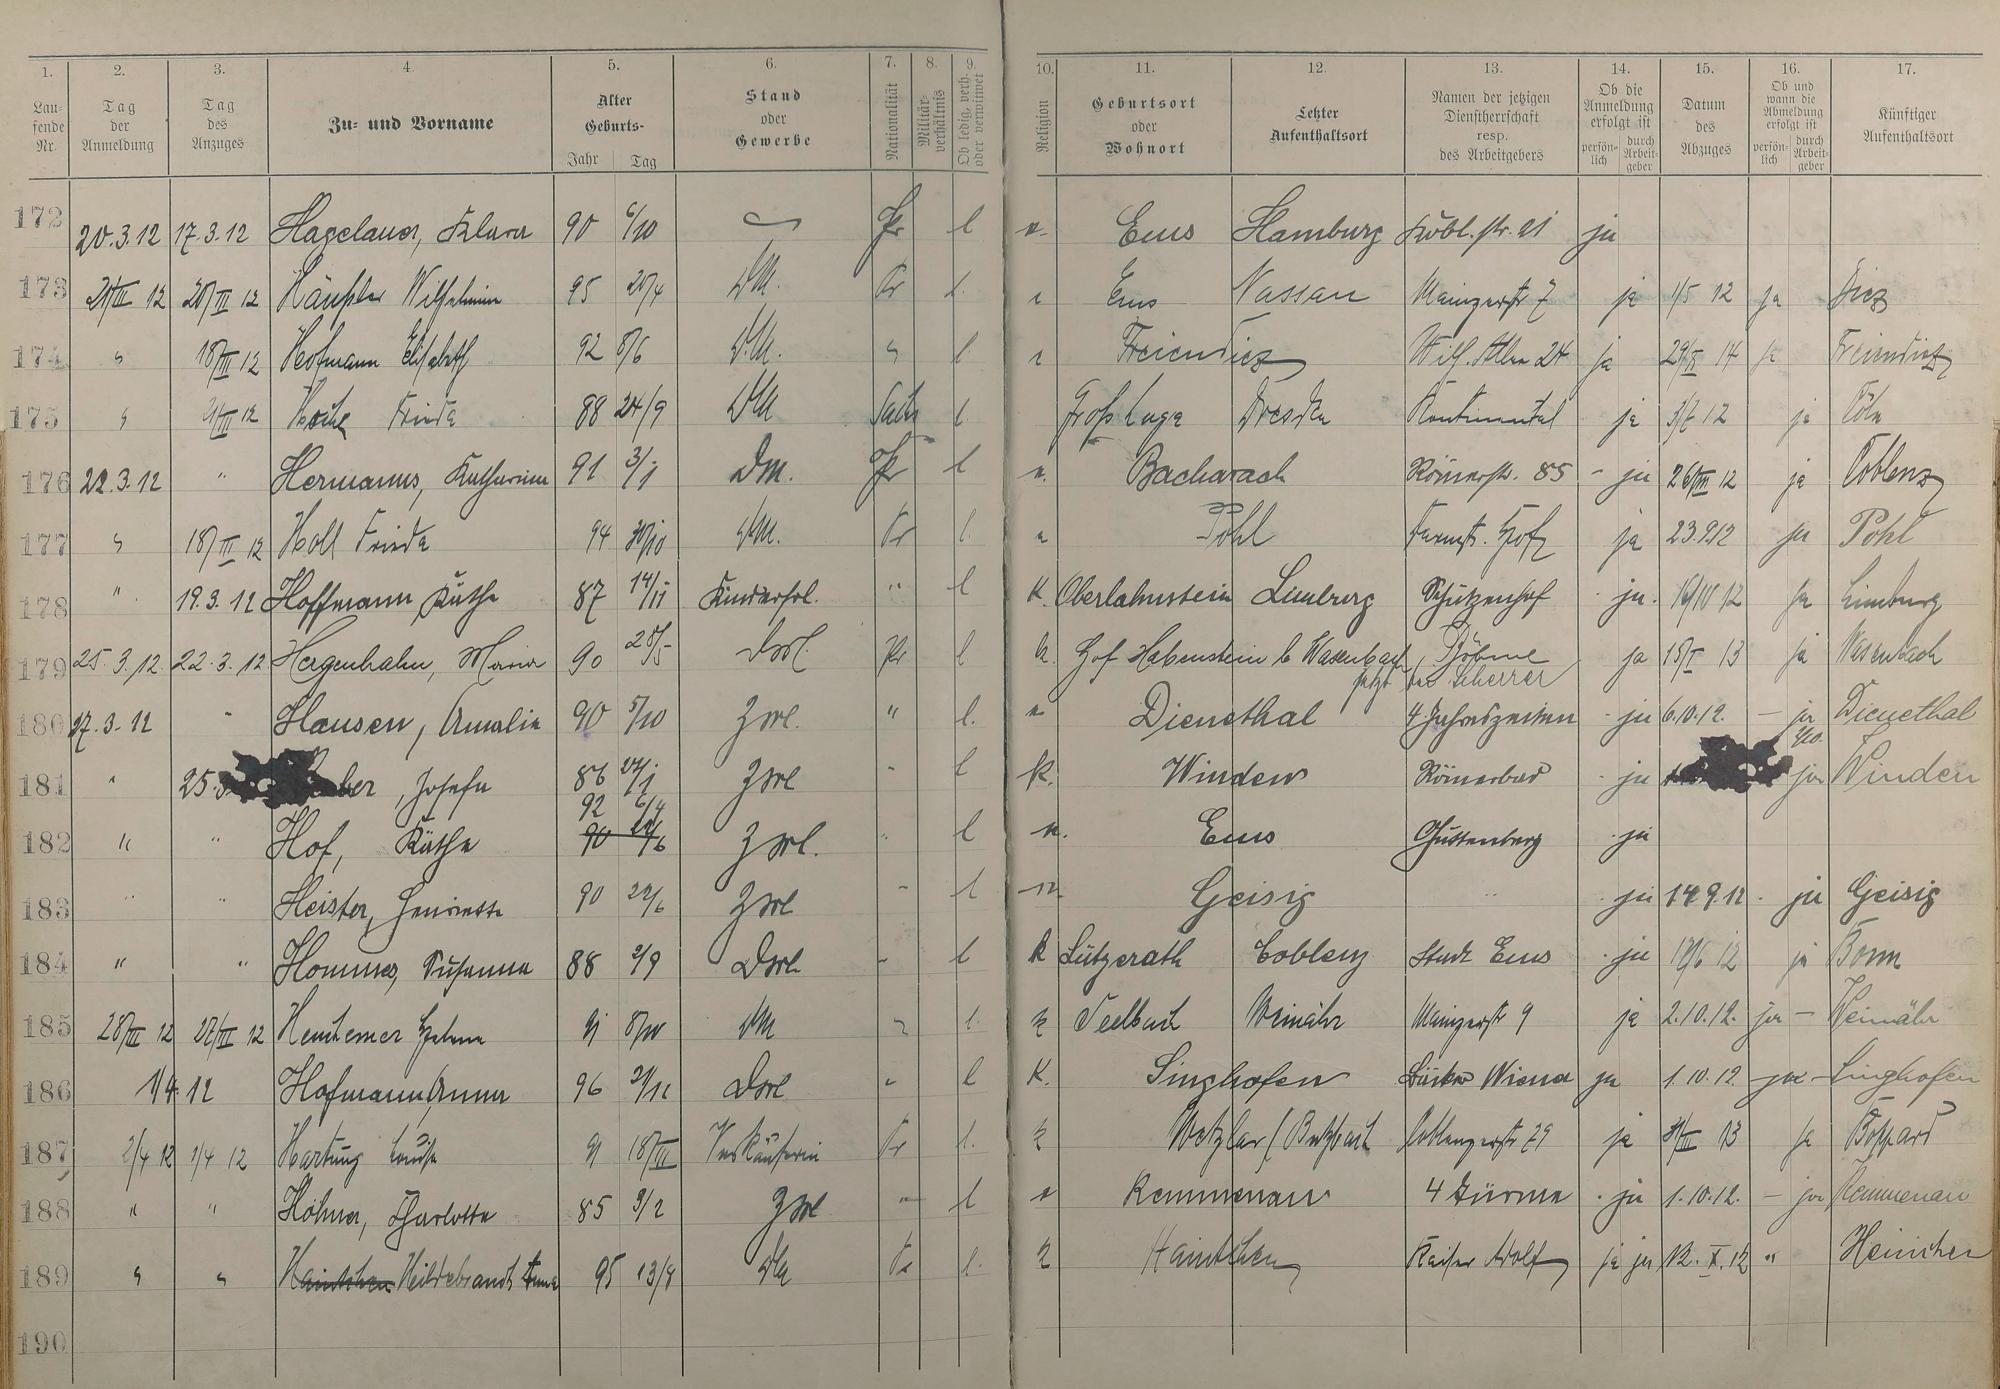 1. 2. 3. 4. 5. 6. 7. 8. 9. 10. 11. 12. 13. 14. 15. 16. 17.
Laufende Nr. Tag der Anmeldung Tag des Anzuges Zu- und Vorname Alter Geburts- Jahr Tag Stand oder Gewerbe Nationalität Militärverhältnis Ob ledig, verh. oder verwitwet Religion Geburtsort oder Wohnort Letzter Aufenthaltsort Namen der jetzigen Dienstherrschaft resp. des Arbeitgebers Ob die Anmeldung erfolgt ist persönlich durch Arbeitgeber Datum des Abzuges Ob und wann die Abmeldung erfolgt ist persönlich durch Arbeitgeber Künftiger Aufenthaltsort
172 20.3.12 17.3.12 Hagelauer, Klara 90 6/10 Pr l Ems Hamburg Kobl. str. 21 ja
173 21/III 12 20/III 12 Wilhelmine 95 20/4 DM. Pr l. Ems Nassau Mainzerstr 7 ja 1/5 12 ja Diez
174 " 18/III 12 Hofmann Elisabeth 92 8/6 D.M. " l. Freiendiez Wilh. Allee 24 ja 14 ja Freiendiez
175 " 21/III 12 Frieda 88 24/9 DM Sachs l. Dresden Kontinental ja 12 ja Cöln
176 22.3.12 " Hermanns, Katharina 91 3/1 DM. Pr l Bacharach Römerstr. 85 - ja 26/VIII 12 ja Coblenz
177 " 18/III 12 Holl Frieda 94 30/10 DM. Pr l. Pohl Darmst. Hof ja 23.9.12 ja Pohl
178 " 19.3.12 Hoffmann, Käthe 87 14/11 Kinderfrl. " l K. Oberlahnstein Limburg Schützenhof ja. 12 ja Limburg
179 25.3.12. 22.3.12 Hergenhahn, Maria 90 28/5 Pr l Hof Habenstein b Wasenbach, Böhme ja 15/I 13 ja Wasenbach
jetzt bei Scherrer
180 27.3.12 " Hansen, Amalie 90 5/10 " l. Dienethal 4 Jahreszeiten - ja 6.10.12. - ja Dienethal
181 " 25. , Josefa 86 l K. Winden Römerbad ja ja Winden
92 6/4
182 " " Hof, Käthe l Ems Fürstenberg ja
183 " " Heister, Henriette 90 22/6 " l Geisig " ja 14.9.12. ja Geisig
184 " " Hommer, Susanna 88 2/9 " l K Lutzerath Coblenz Stadt Ems ja 12 ja Bonn
185 28/III 12 27/III 12 Helene 91 8/10 DM " l. Seelbach Weinähr Mainzerstr 9 ja 2.10.12. ja - Weinähr
186 1/4.12 Hofmann Anna 96 21/11 " l K. Singhofen Wiena ja 1.10.12. ja - Singhofen
187 2/4 12 1/4 12 Hartung Louise 91 18/III Verkäuferin Pr l. Wetzlar / Butzbach Coblenzerstr 29 ja 13 ja Boppard
188 " " Höhner, Charlotte 85 3/2 " l Kemmenau 4 Türme ja 1.10.12. - ja Kemmenau
189 " " Heildebrandt Anna 95 13/9 DM Pr l. Kaiser Adolf ja ja 12.X.12 "
190